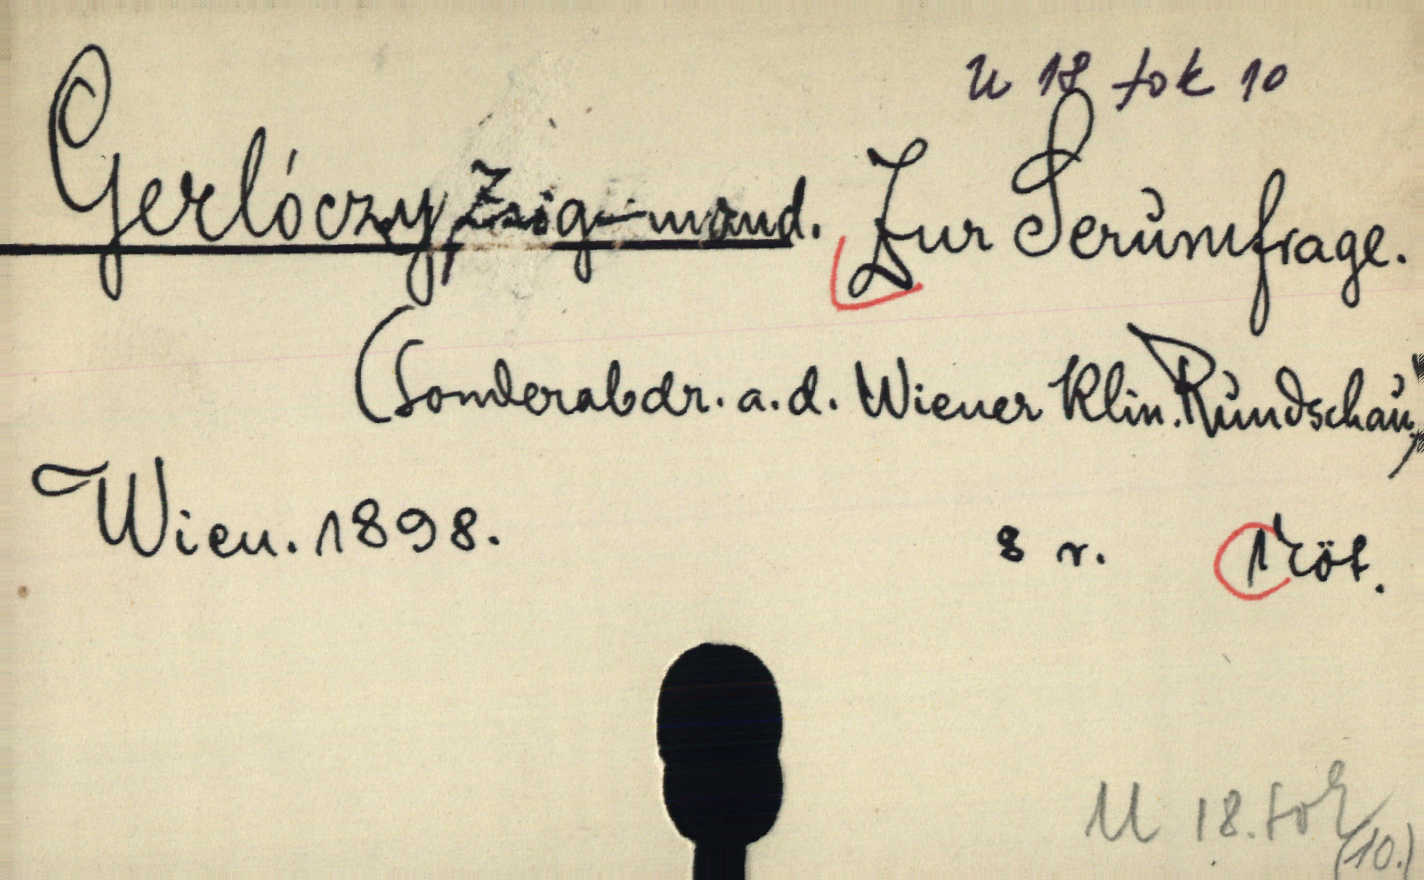 U 18 tok 10
Gerlóczy, Zsigmond. Zur Serumfrage.
(Sonderabdr. a. d. Wiener Klin. Rundschau)
Wien. 1898. 8 r. 1 köt.
U 18. tok
(10.)